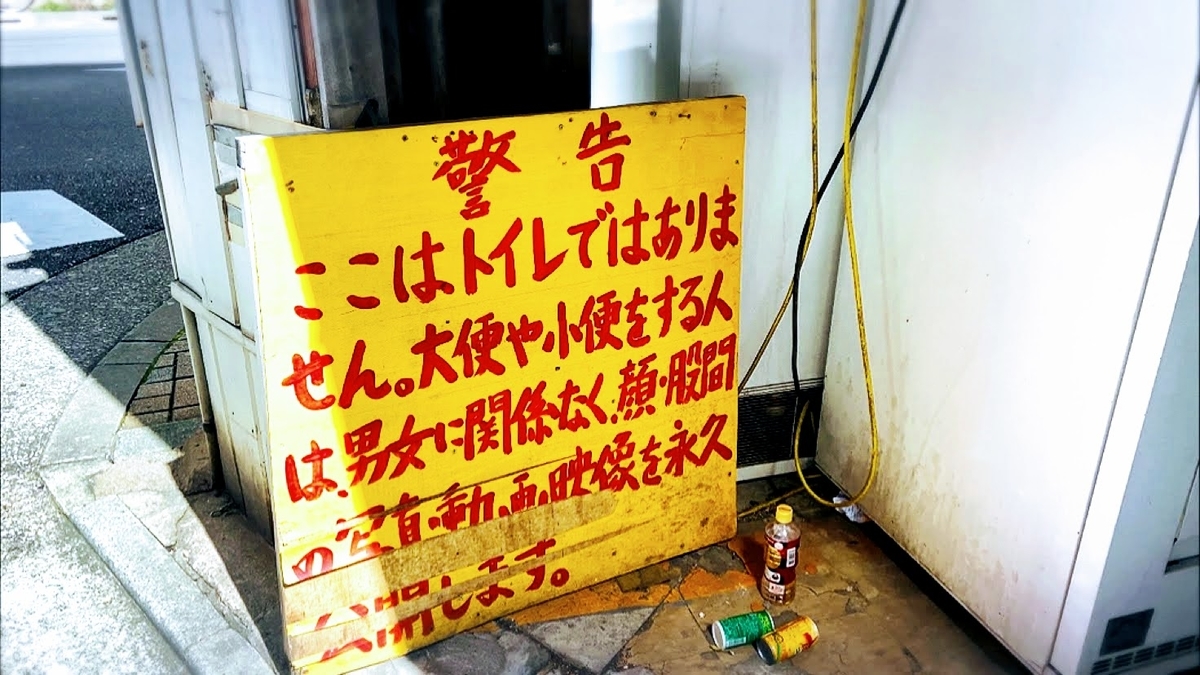 警告
ここはトイレではありま
せん。大便や小便をする人
は、男女に関係なく、顔・股間
の写真・動画・映像を永久
公開します。